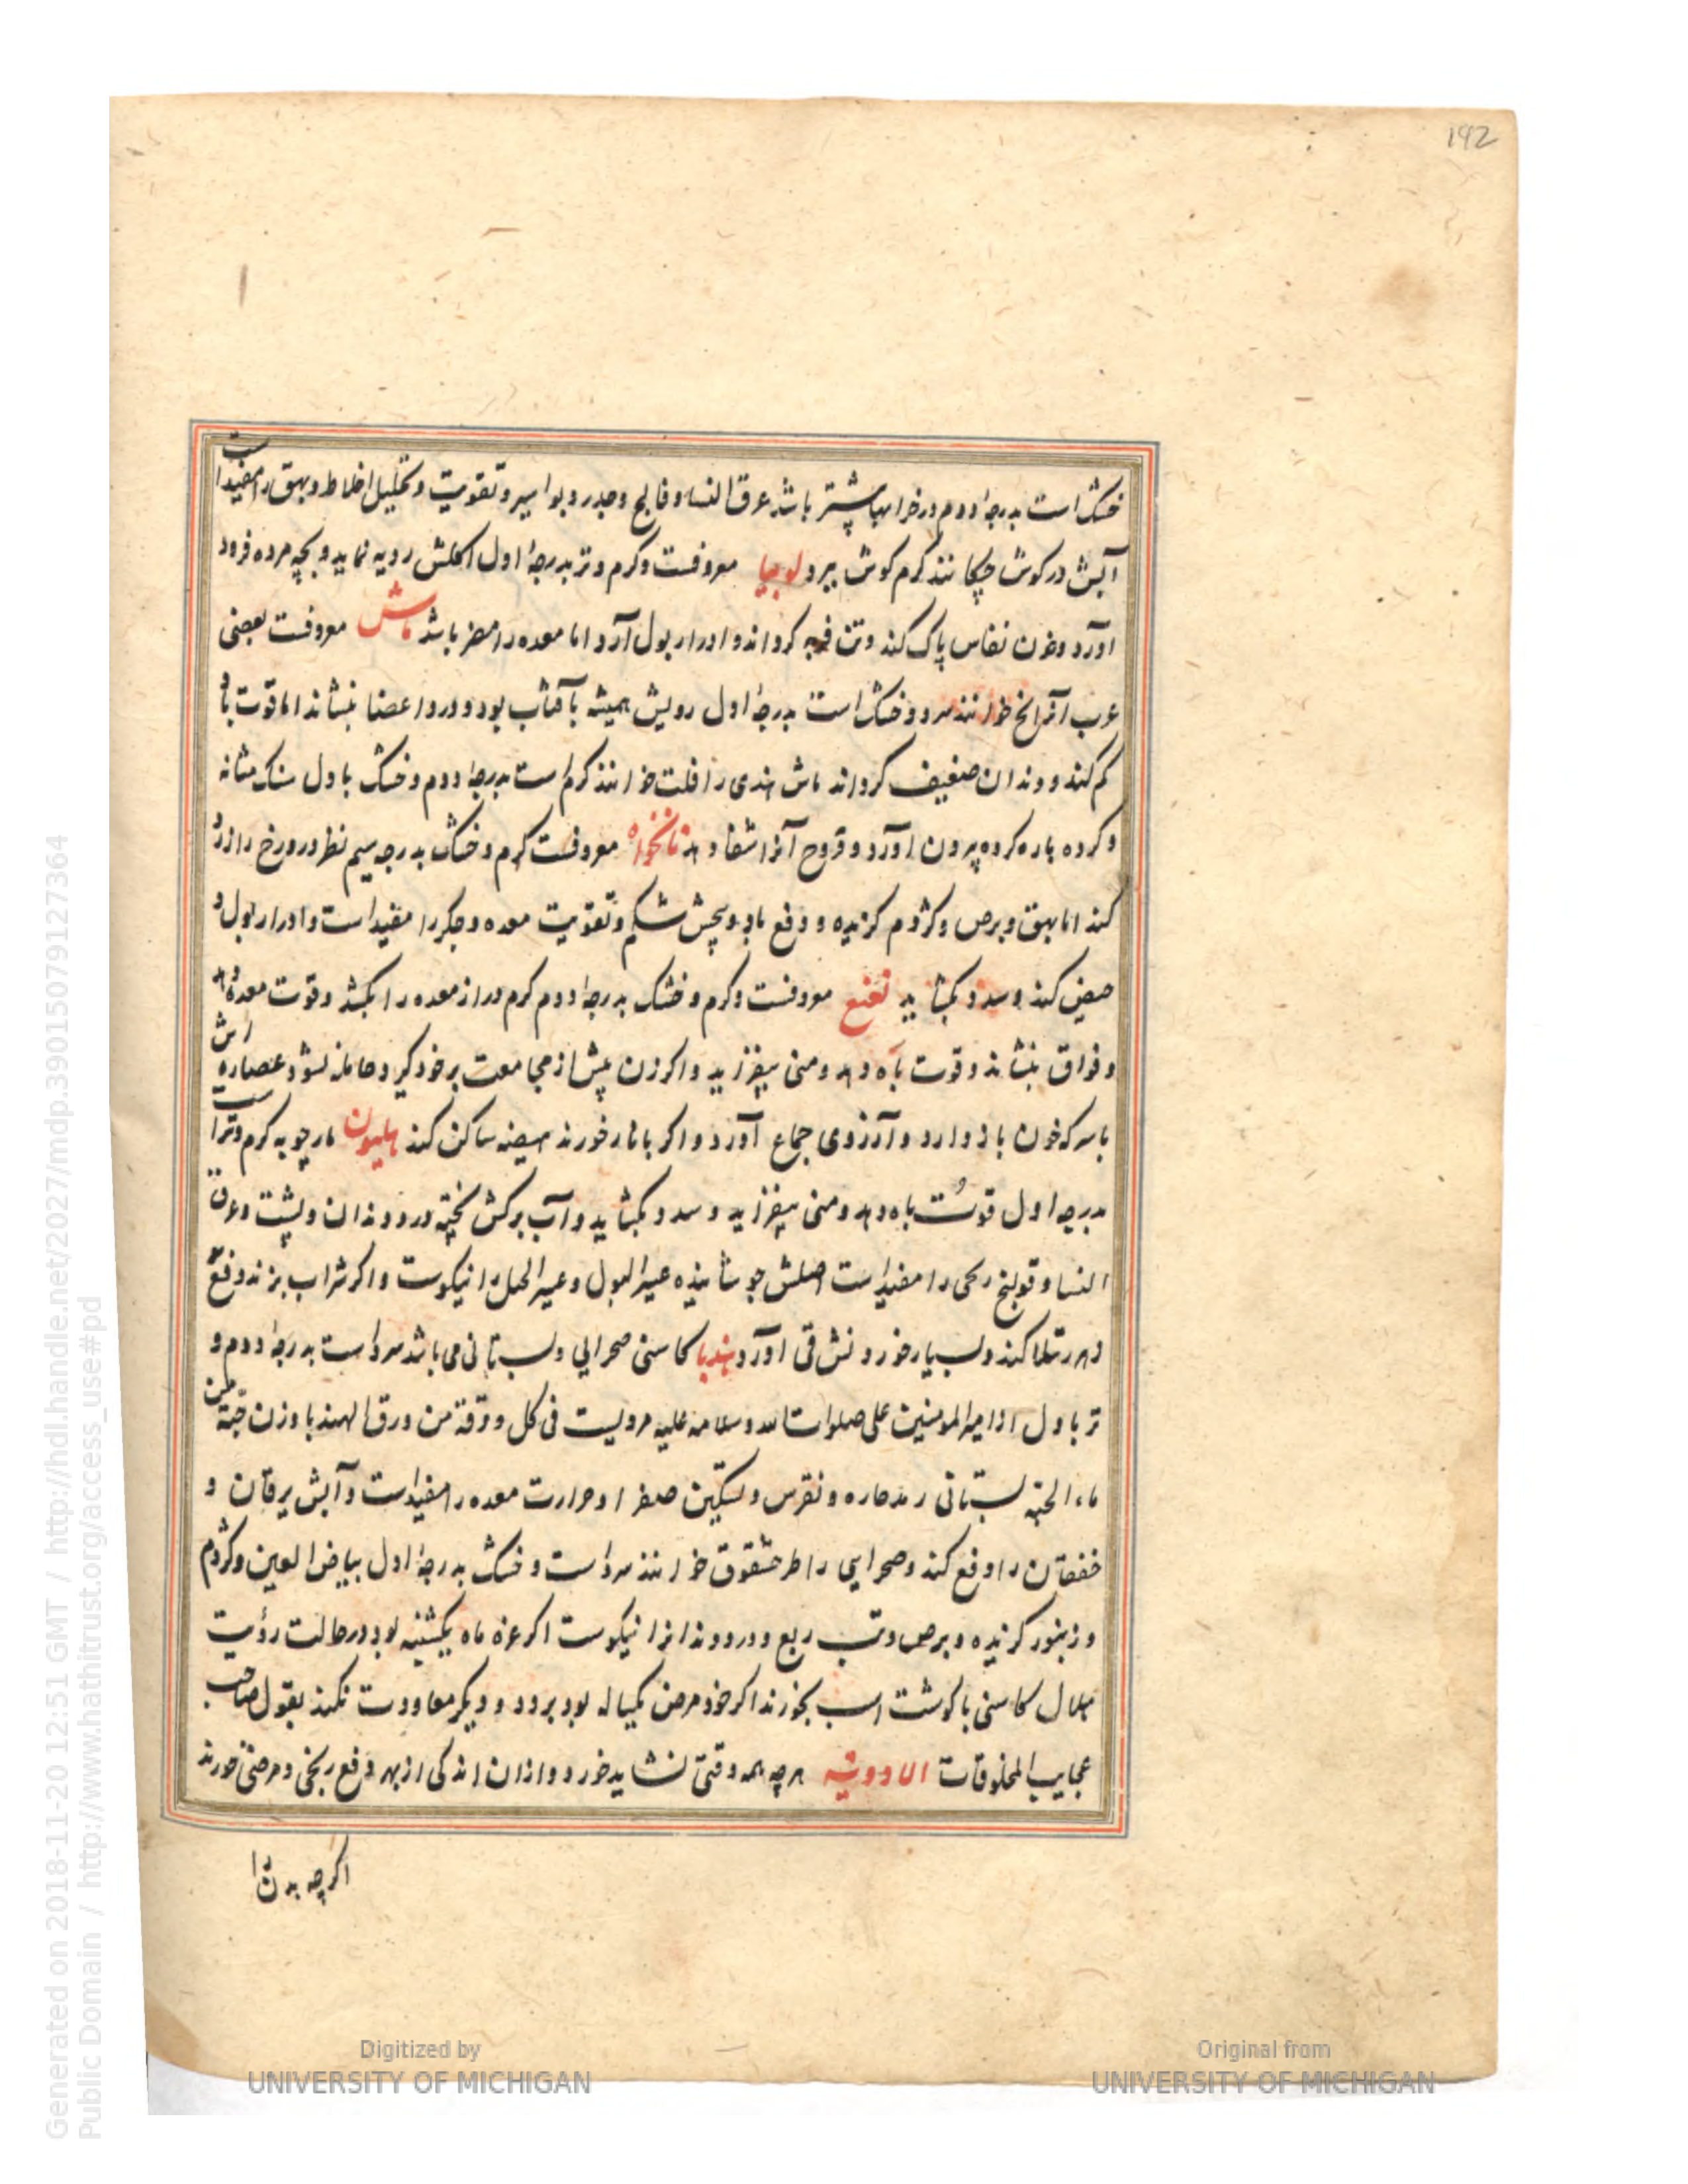 192
خشک است بدرجهٔ دوم و در خرابها بیشتر باشد عرق النسا و فالج و جدر و بواسیر و تقویت و تحلیل اخلاط و بهق را مفید است
آبش در کوش چکانند کرم کوش ببرد لوبیا معروفست و کرم و تر بدرجهٔ اول اکلش رویه نماید و بچه مرده فرود
آورد و خون نفاس پاک کند و تن فربه کرداند و ادرار بول آرد اما معده را مضر باشد ماش معروفست بعضی
عرب آنرا خوانند سرد و خشک است بدرجهٔ اول رویش همیشه بآفتاب بود و درد اعضا بنشاند اما قوت باه
کم کند و دندان ضعیف کرداند ماش هندی را قلت خوانند کرم است بدرجهٔ دوم و خشک باول سنک مثانه
و کرده پاره کرده بیرون آورد و قروح آنرا شفا دهد نانخواه معروفست کرم و خشک بدرجه سیم نظر درو رخ را زرد
کند اما بهق و برص و کژدم کزیده و دفع باد و پیچش شکم و تقویت معده و جکر را مفید است و ادرار بول و
حیض کند و سدد بکشاید نعنع معروفست و کرم و خشک بدرجهٔ دوم کرم دراز معده را بکشد و قوت معده دهد
و فواق بنشاند و قوت باه دهد و منی بیفزاید و اکر زن پیش از مجامعت بر خود کیرد حامله نشود عصاره اش
با سرکه خون باز دارد و آرزوی جماع آورد و اکر بانار خورند هیضه ساکن کند هلیون مارچوبه کرم و تر است
بدرجه اول قوت باه دهد و منی بیفزاید و سدد بکشاید و آب برکش پخته درد دندان و پشت و عرق
النسا و قولنج ریحی را مفید است اصلش جوشانیده عسر البول و عسر الحبل را نیکوست و اکر شراب بزند دفع
رتیلا کند و بسیار خوردنش قی آورد هندبا کاسنی صحرایی و بستانی می باشد سرد است بدرجهٔ دوم و
تر باول از امیر المومنین علی صلوات الله و سلامه علیه مرویست فی کل ورقة من ورق الهندبا وزن حبة من
ماء الجنه بستانی رمد حاره و نقرس و تسکین صفرا و حرارت معده را مفید است و آبش یرقان و
خفقان را دفع کند و صحرایی را طرخشقوق خوانند سرد است و خشک بدرجهٔ اول بیاض العین و کژدم
و زنبور کزیده و برص و تب ربع و درد دندانرا نیکوست اکر غره ماه یکشنبه بود در حالت رؤیت
هلال کاسنی با کوشت اسب بخورند اکر خود مرض یکساله بود برود و دیکر معاودت نکند بقول صاحب
عجایب المخلوقات الادویه هرچه همه وقتی نشاید خورد و از آن اندکی از بهر دفع رنجی و مرضی خورند
اکرچه بدن را
Generated on 2018-11-20 12:51 GMT / http://hdl.handle.net/2027/mdp.39015079127364
Public Domain / http://www.hathitrust.org/access_use#pd
Digitized by
UNIVERSITY OF MICHIGAN
Original from
UNIVERSITY OF MICHIGAN